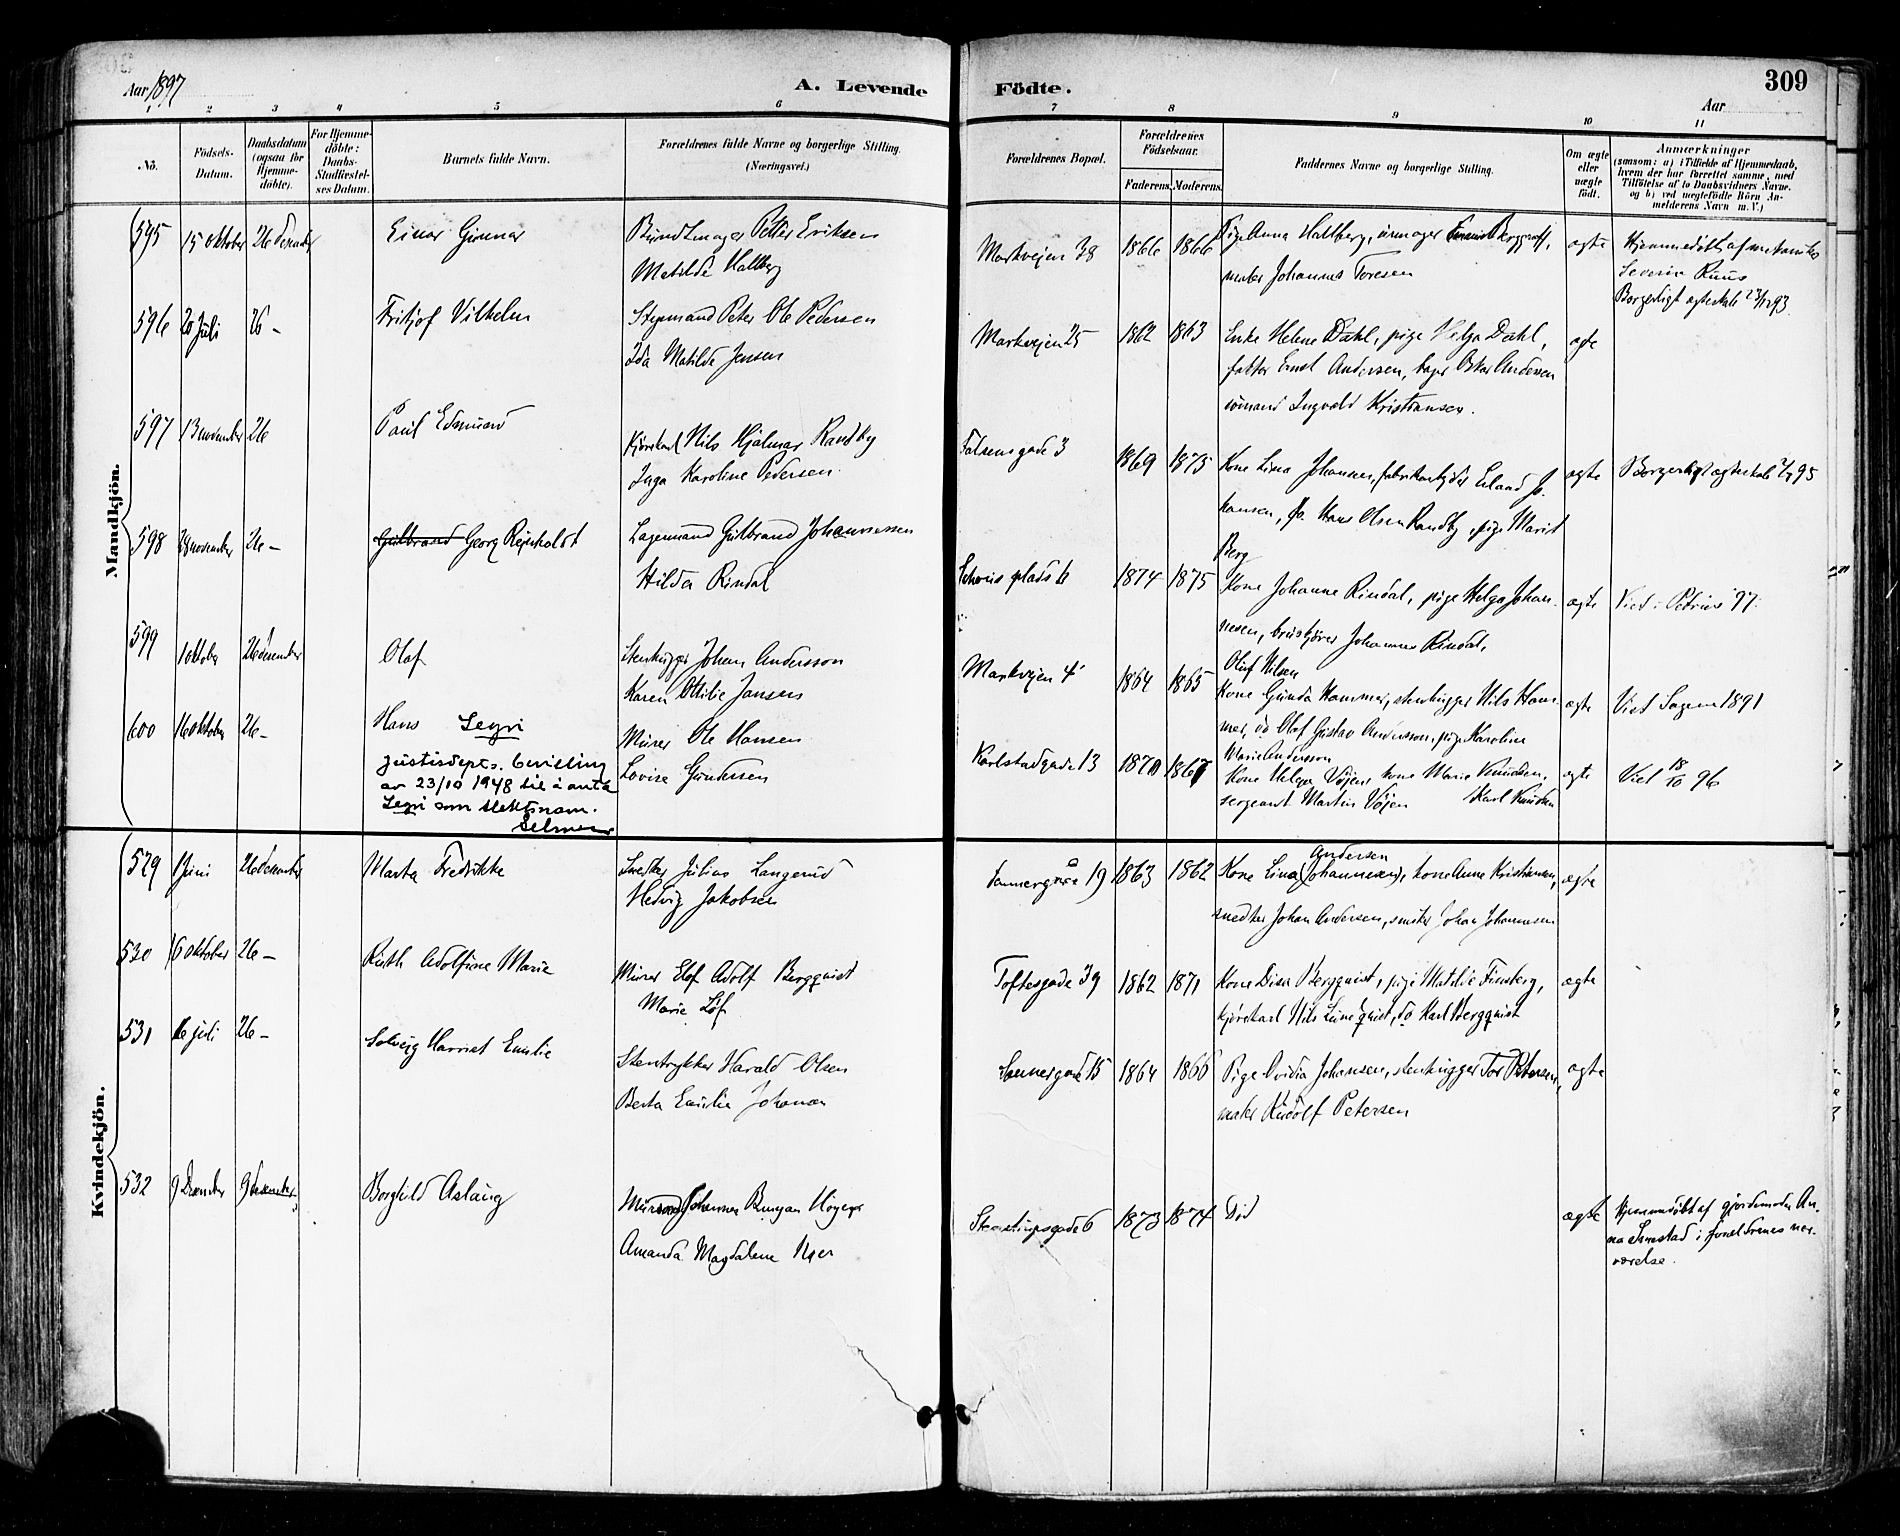 Aar 1897
A. Levende
Födte.
309
Aar
1 2 3 4 5 6 7 8 9 10 11
No.
Födsels-
Datum.
Daabsdatum
(ogsaa for
Hjemme-
döbte).
For Hjemme-
döbte:
Daabs-
Stadfæstel-
ses Datum.
Barnets fulde Navn.
Forældrenes fulde Navne og borgerlige Stilling.
(Næringsvei.)
Forældrenes Bopæl.
Forældrenes
Födselsaar.
Faderens. Moderens.
Faddernes Navne og borgerlige Stilling.
Om ægte
eller
uægte
födt.
Anmærkninger
(saasom: a) i Tilfælde af Hjemmedaab,
hvem der har forrettet samme, med
Tilföielse af to Daabsvidners Navne,
og b) ved uægtefödte Börn An-
melderens Navn m. V.)
Mandkjön.
595 15 oktober 26 desember
Einar Gunnar
Petter Eriksen
Matilde Hallberg
Markvejen 38 1866 1866
Pige Anna Hallberg,
maler Johannes Toresen
ægte
Hjemmedøbt af
Severin Ruus
Borgerligt ægteskab 93
596 20 Juli 26 -
Fritjof Vilhelm
Styrmand Peter Ole Pedersen
Ida Matilde Jensen
Markvejen 25 1862 1863
Enke Helene Dahl, pige Helga Dahl,
faktor Ernst Andersen, bager Oskar Andersen
sømand Ingvald Kristiansen.
ægte
597 13 november 26
Paul Edmund
Kjørekarl Nils Hjalmar Randby
Inga Karoline Pedersen
Falsensgade 3 1869 1875
Kone Lina Johannesen, fabrikarbejder Erland Jo-
hansen, do. Hans Olsen Randby, pige Marit
Berg
ægte
Borgerligt ægteskab 95
598 28 november 26 -
Gulbrand Georg Reinholdt
Lagermand Gulbrand Johannessen
Hilda Rindal
Schous plads 6 1874 1875
Kone Johanne Rindal, pige Helga Johan-
nesen, bruskjører Johannes Rindal,
Oluf Nilsen
ægte
Viet i Petrus 97.
599 1 oktober 26 desember
Olaf
Stenhugger Johan Andersson
Karen Otilie Jansen
Markvejen 4 1864 1865
Kone Gunda Hammer, stenhugger Nils Ham-
mer, do Olof Gustav Andersson, pige Karoline
Marie Andersson
ægte
Viet Sagene 1891
600 16 oktober 26 -
Hans Segri
Justisdepts. bevilling
av 23/10 1948 til å anta
Segri som slektsnavn.
Murer Ole Hansen
Lovise Gundersen
Karlstadgade 13 1870 1867
Kone Helga Vøjen, kone Marie Knudsen,
sergeant Martin Vøjen Karl Knudsen
ægte
Viet 18/10 96
Kvindekjön.
529 1 Juni 26 desember
Marta Fredrikke
Snedker Julius Langerud
Hedvig Jakobsen
Sannergade 19 1863 1862
Andersen
Kone Lina (Johannesen), kone Anne Kristiansen,
snedker Johan Andersen, snedker Johan Johannesen
ægte
530 6 oktober 26 -
Ruth Adolfine Marie
Murer Elof Adolf Bergquist
Marie Löf
Toftesgade 39 1862 1871
Kone Disa Bergquist, pige Matilde Finsberg,
kjørekarl Nils Lundquist, do Karl Bergquist
ægte
531 16 juli 26 -
Solveig Harriet Emilie
Stentrykker Harald Olsen
Berta Emilie Johansen
Sannergade 15 1864 1866
Pige Ovidia Johansen, stenhugger Tor Petersen,
maler Rudolf Petersen
ægte
532 9 Desember 9 desember
Borghild Aslaug
Johannes Bunyan Höyer
Amanda Magdalene Moer
Steenstrupsgade 6 1873 1874
Død
ægte
Hjemmedøbt af gjordemoder An-
na Smestad i forældrenes nær-
værelse.